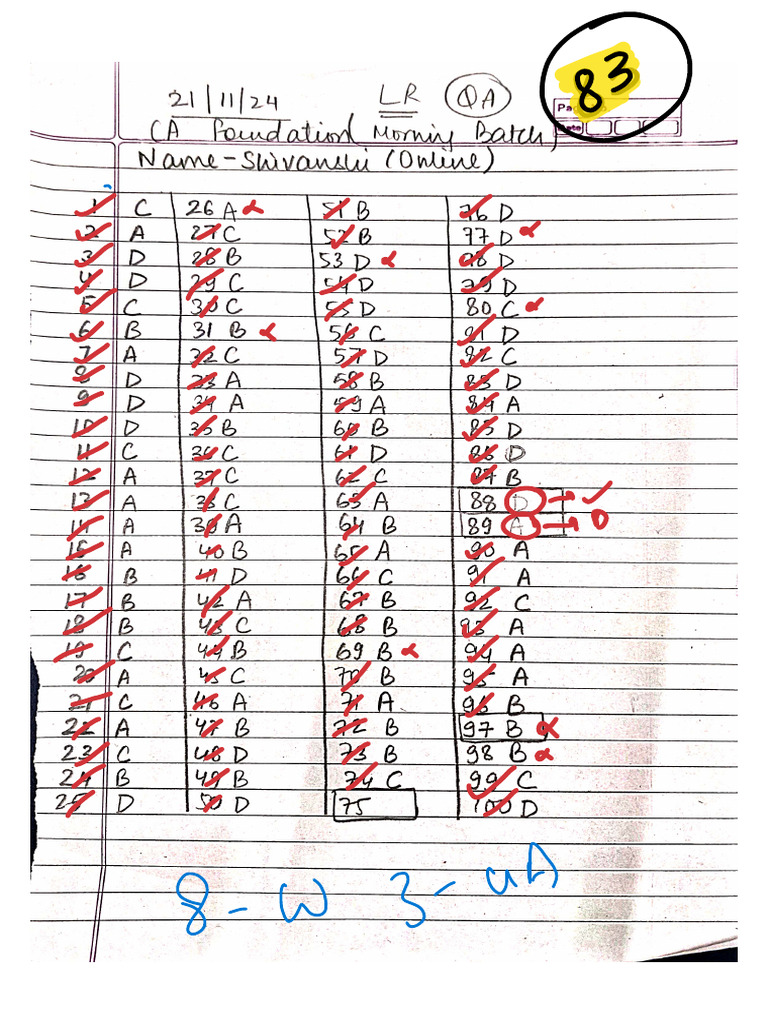 83
21/11/24 LR QA
CA Foundation (Morning Batch)
Name-Shivanshi (Online)
1 C 26 A 51 B 76 D
2 A 27 C 52 B 77 D
3 D 28 B 53 D 78 D
4 D 29 C 54 D 79 D
5 C 30 C 55 D 80 C
6 B 31 B 56 C 81 D
7 A 32 C 57 D 82 C
8 D 33 A 58 B 83 D
9 D 34 A 59 A 84 A
10 D 35 B 60 B 85 D
11 C 36 C 61 D 86 D
12 A 37 C 62 C 87 B
13 A 38 C 63 A 88 D
14 A 39 A 64 B 89 A → D
15 A 40 B 65 A 90 A
16 B 41 D 66 C 91 A
17 B 42 A 67 B 92 C
18 B 43 C 68 B 93 A
19 C 44 B 69 B 94 A
20 A 45 C 70 B 95 A
21 C 46 A 71 A 96 B
22 A 47 B 72 B 97 B
23 C 48 D 73 B 98 B
24 B 49 B 74 C 99 C
25 D 50 D 75 100 D
8 - W 3 - UA